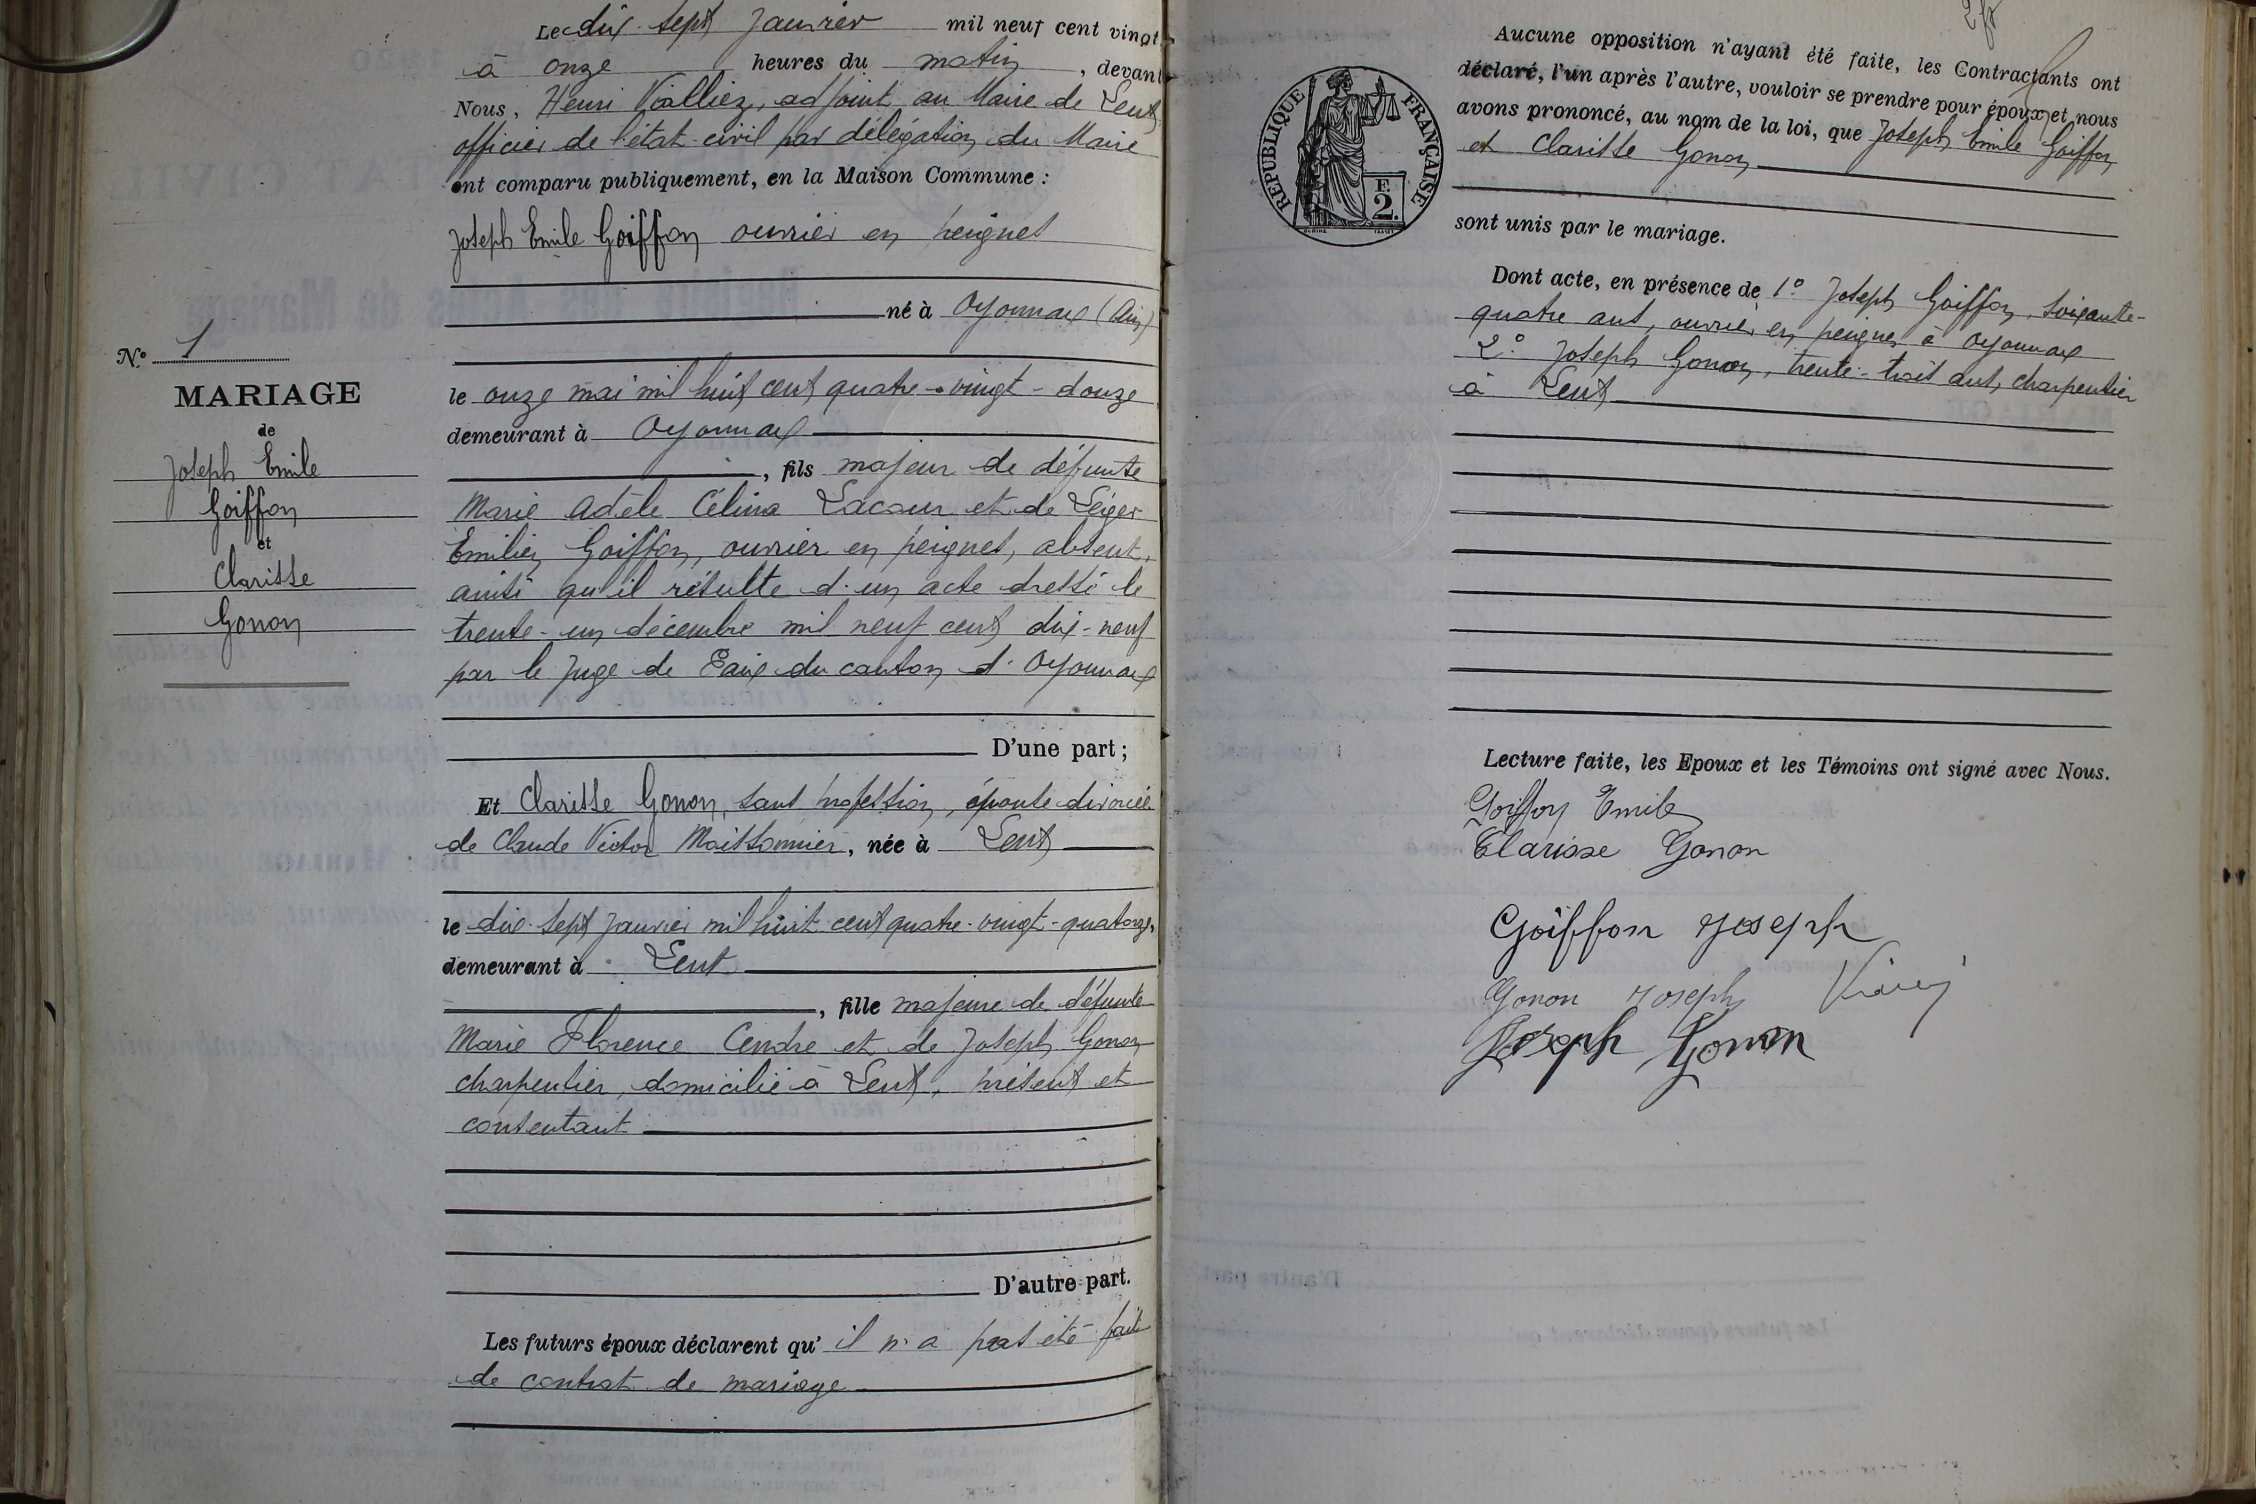 Le dix-sept Janvier mil neuf cent vingt
à onze heures du matin, devant
Nous, Henri Vialliez, adjoint au Maire de Lent
officier de l'état-civil par délégation du Maire
ont comparu publiquement, en la Maison Commune :
Joseph Emile Goiffon ouvrier en peignes
né à Oyonnax (Ain)
No. 1
MARIAGE
de
Joseph Emile
Goiffon
et
Clarisse
Gonon
le onze mai mil huit cent quatre-vingt-douze
demeurant à Oyonnax
, fils majeur de défunte
Marie Adèle Célina Lacour et de Léger
Emilien Goiffon, ouvrier en peignes, absent,
ainsi qu'il résulte d'un acte dressé le
trente-un décembre mil neuf cent dix-neuf
par le Juge de Paix du canton d'Oyonnax
D'une part ;
Et Clarisse Gonon, sans profession, épouse divorcée
de Claude Victor Maissonnier, née à Lent
le dix-sept Janvier mil huit cent quatre-vingt-quatorze,
demeurant à Lent
, fille majeure de défunte
Marie Florence Cendre et de Joseph Gonon
charpentier, domicilié à Lent, présent et
consentant
D'autre part.
Les futurs époux déclarent qu'il n'a pas été fait
de contrat de mariage
RÉPUBLIQUE FRANÇAISE
F. 2.
Aucune opposition n'ayant été faite, les Contractants ont
déclaré, l'un après l'autre, vouloir se prendre pour époux, et nous
avons prononcé, au nom de la loi, que Joseph Emile Goiffon
et Clarisse Gonon
sont unis par le mariage.
Dont acte, en présence de 1° Joseph Goiffon, soixante-
quatre ans, ouvrier en peignes à Oyonnax
2° Joseph Gonon, trente-trois ans, charpentier
à Lent
Lecture faite, les Epoux et les Témoins ont signé avec Nous.
Goiffon Emile
Clarisse Gonon
Goiffon Joseph
Gonon Joseph
Joseph Gonon